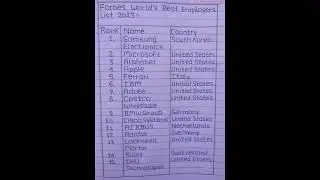 Forbes World's Best Employers
List 2023:-
Rank Name Country
1. Samsung South Korea
Electronics
2. Microsoft United States
3. Alphabet United States
4. Apple United States
5. Ferrari Italy
6. IBM United States
7. Adobe United States
8. Costco United States
Wholesale
9. BMW Group Germany
10. Cisco Systems United States
11. AIRBUS Netherlands
12. Adidas Germany
13. Lockheed United States
Martin
14. Rolex Switzerland
15. DELL United States
Technologies